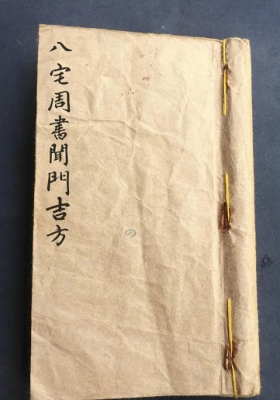 八宅周書開門吉方